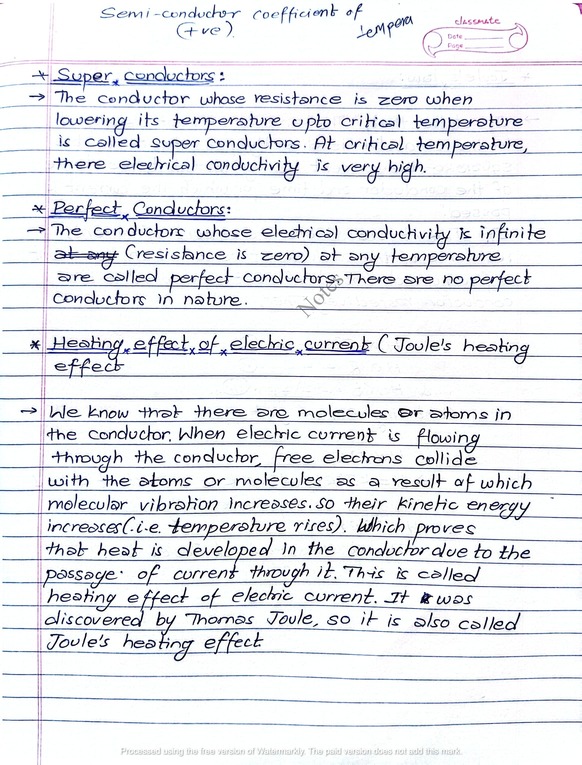 Semi-conductor coefficient of tempera
(+ve)
classmate
Date
Page
* Super conductors:
→ The conductor whose resistance is zero when
lowering its temperature upto critical temperature
is called super conductors. At critical temperature,
there electrical conductivity is very high.
* Perfect Conductors:
→ The conductors whose electrical conductivity is infinite
at any (resistance is zero) at any temperature
are called perfect conductors. There are no perfect
conductors in nature.
Notes
* Heating effect of electric current (Joule's heating
effect
→ We know that there are molecules or atoms in
the conductor. When electric current is flowing
through the conductor, free electrons collide
with the atoms or molecules as a result of which
molecular vibration increases. so their kinetic energy
increases (i.e. temperature rises). Which proves
that heat is developed in the conductor due to the
passage of current through it. This is called
heating effect of electric current. It was
discovered by Thomas Joule, so it is also called
Joule's heating effect.
Processed using the free version of Watermarkly. The paid version does not add this mark.